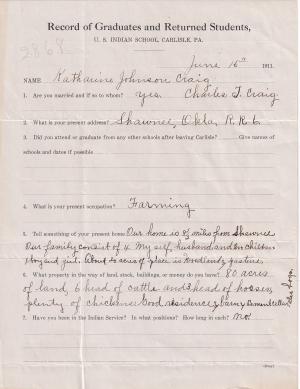 Record of Graduates and Returned Students,
U. S. INDIAN SCHOOL, CARLISLE, PA.
2868
June 16th 1911.
NAME Katharine Johnson Craig
1. Are you married and if so to whom? yes. Charles T. Craig
2. What is your present address? Shawnee, Okla, R.R. 6.
3. Did you attend or graduate from any other schools after leaving Carlisle? Give names
of schools and dates if possible
4. What is your present occupation? Farming
5. Tell something of your present home Our home is 8 miles from Shawnee
Our family consist of 4 My self, husband, and children
1 boy and girl. About 20 acres of place is woodland, pasture,
6. What property in the way of land, stock, buildings, or money do you have? 80 acres
of land, 6 head of cattle and head of horses,
plenty of chickens. Good residence, barn, cellar, hogs.
7. Have you been in the Indian Service? In what positions? How long in each? No.